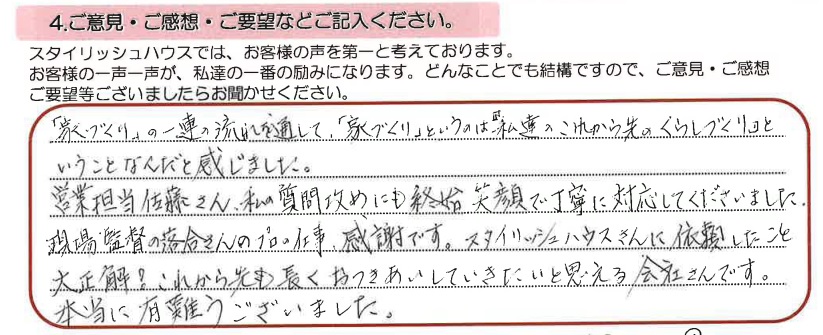 4.ご意見・ご感想・ご要望などご記入ください。
スタイリッシュハウスでは、お客様の声を第一と考えております。
お客様の一声一声が、私達の一番の励みになります。どんなことでも結構ですので、ご意見・ご感想
ご要望等ございましたらお聞かせください。
「家づくり」の一連の流れを通して、「家づくり」というのは『私達のこれから先のくらしづくり』と
いうことなんだと感じました。
営業担当佐藤さん、私の質問攻めにも終始笑顔で丁寧に対応してくださいました。
現場監督の落合さんのプロの仕事、感謝です。スタイリッシュハウスさんに依頼したこと
大正解!これから先も長くおつきあいしていきたいと思える会社さんです。
本当に有難うございました。